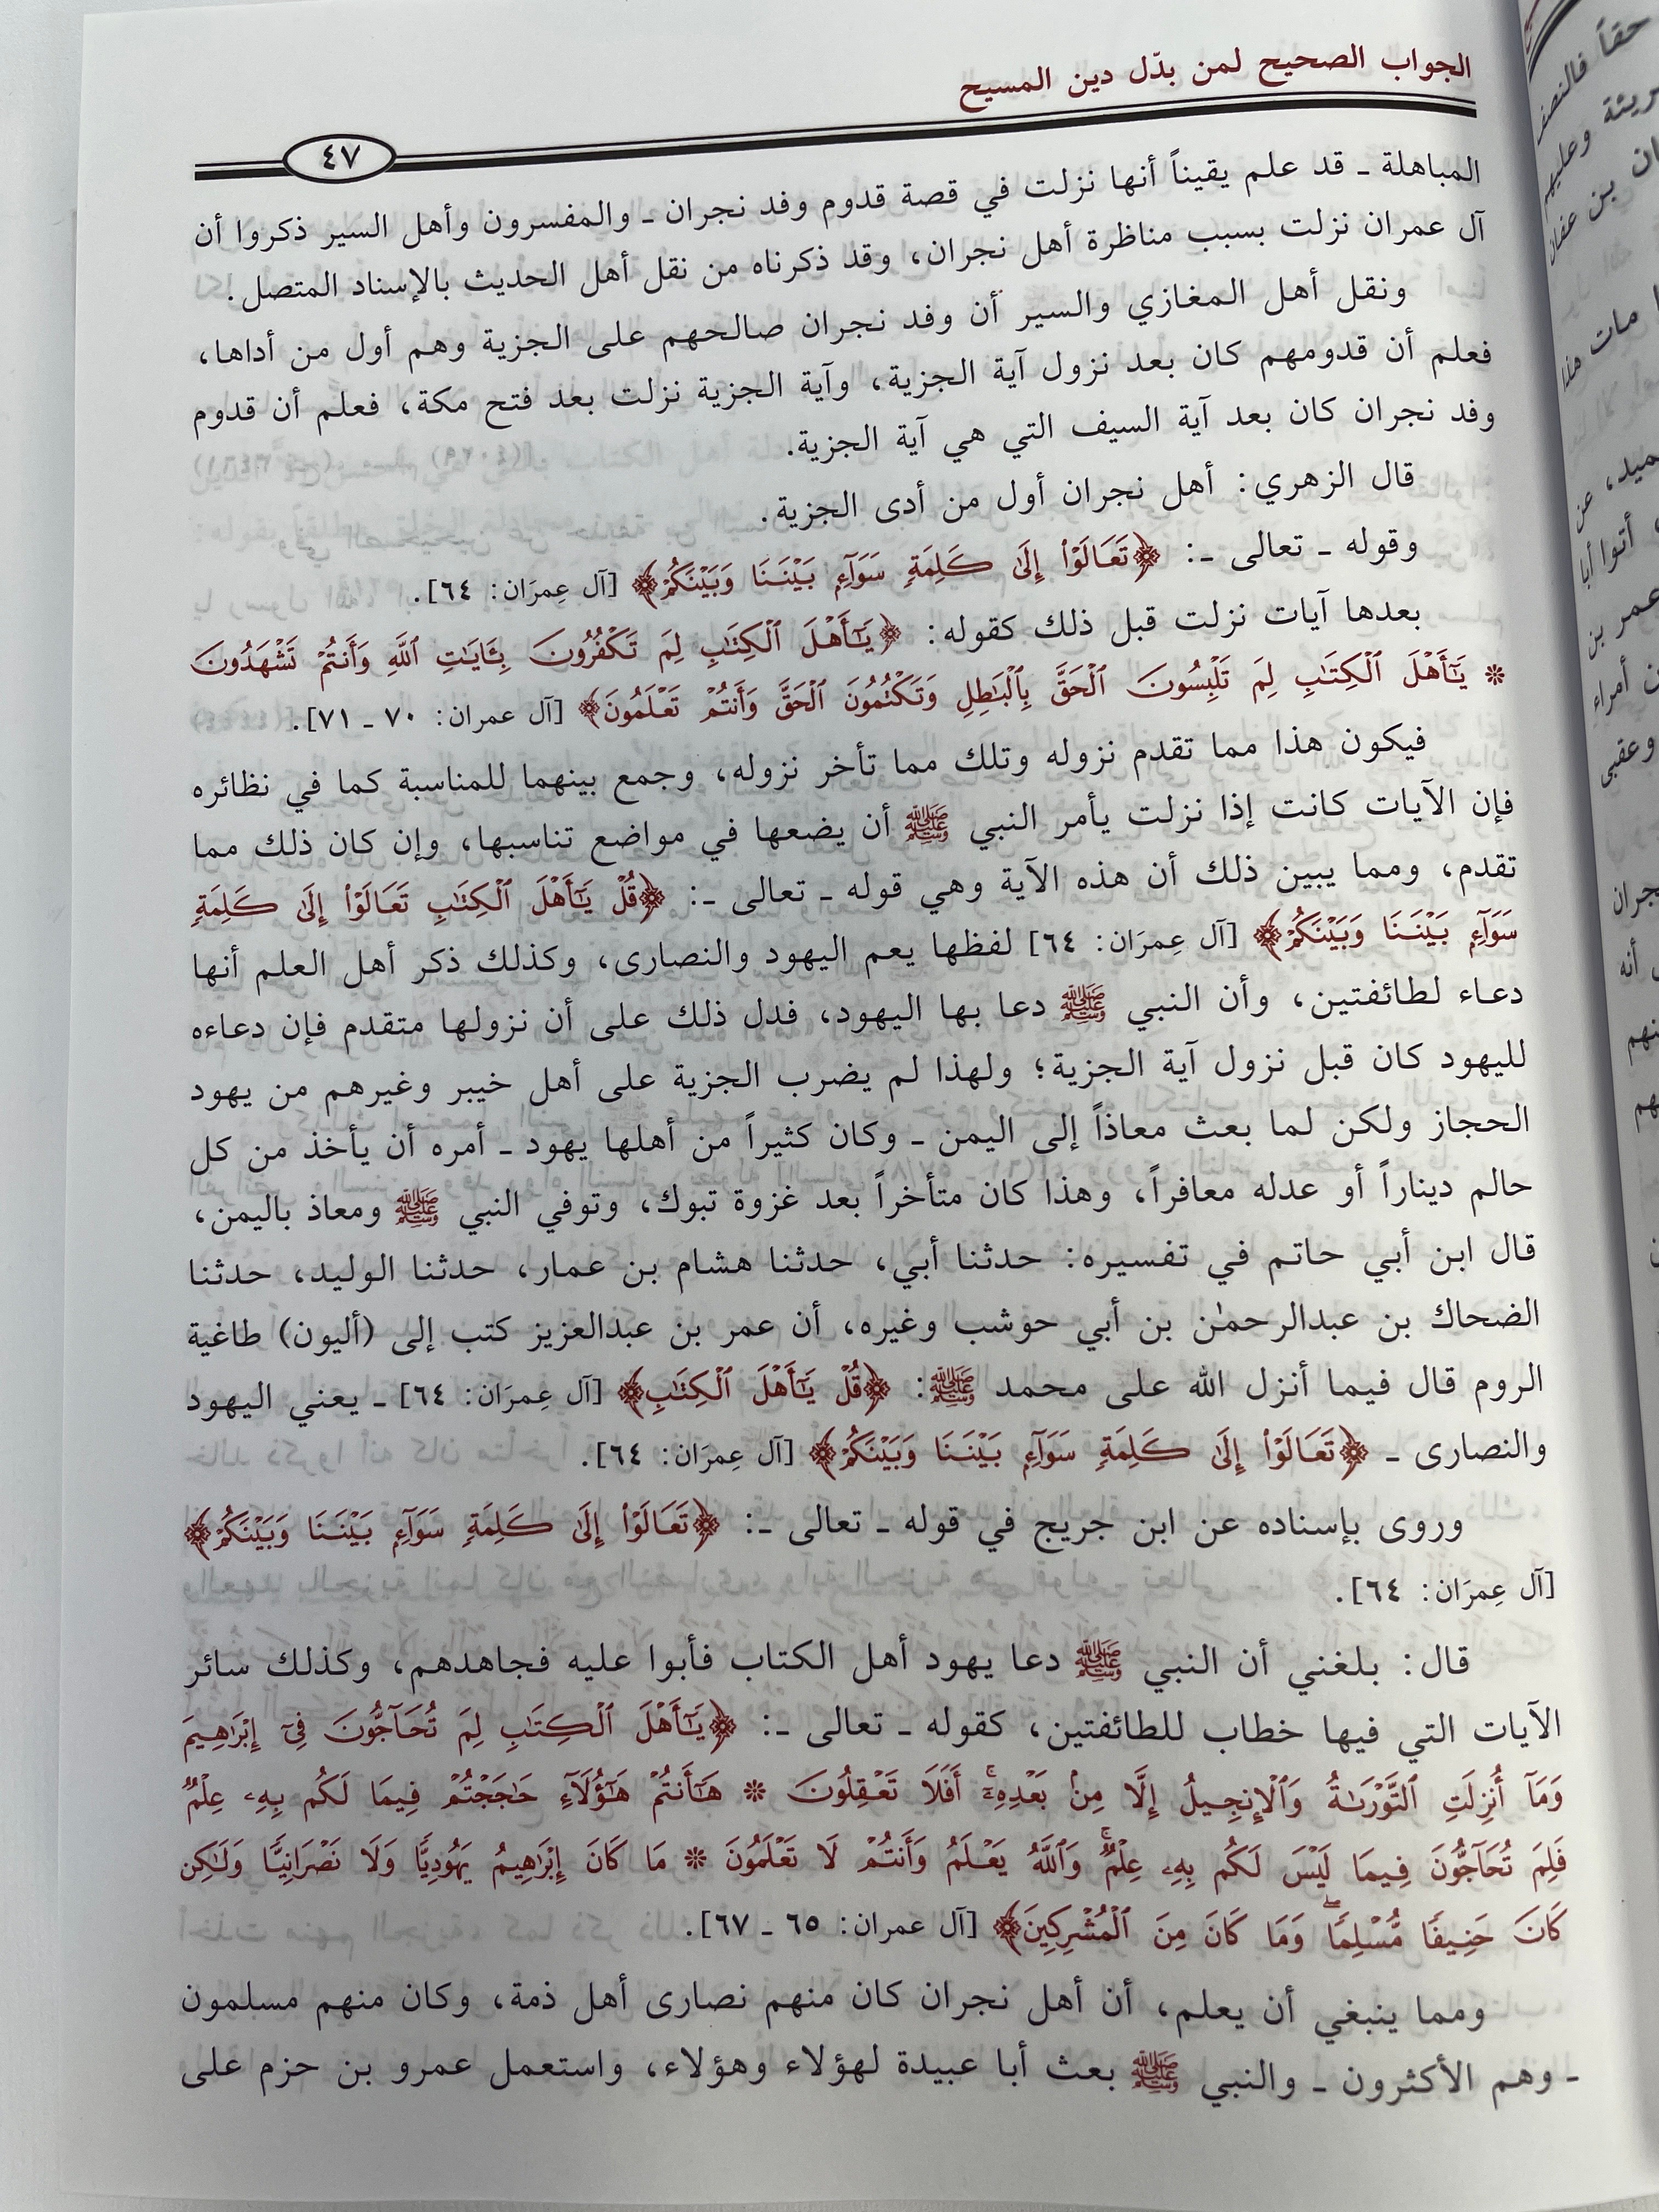 الجواب الصحيح لمن بدّل دين المسيح
٤٧
المباهلة ـ قد علم يقيناً أنها نزلت في قصة قدوم وفد نجران ـ والمفسرون وأهل السير ذكروا أن
آل عمران نزلت بسبب مناظرة أهل نجران، وقد ذكرناه من نقل أهل الحديث بالإسناد المتصل.
ونقل أهل المغازي والسير أن وفد نجران صالحهم على الجزية وهم أول من أداها،
فعلم أن قدومهم كان بعد نزول آية الجزية، وآية الجزية نزلت بعد فتح مكة، فعلم أن قدوم
وفد نجران كان بعد آية السيف التي هي آية الجزية.
قال الزهري: أهل نجران أول من أدى الجزية.
وقوله ـ تعالى ـ: ﴿تَعَالَوْا۟ إِلَىٰ كَلِمَةٍ سَوَآءٍ بَيْنَنَا وَبَيْنَكُمْ﴾ [آل عِمرَان: ٦٤].
بعدها آيات نزلت قبل ذلك كقوله: ﴿يَـٰٓأَهْلَ ٱلْكِتَـٰبِ لِمَ تَكْفُرُونَ بِـَٔايَـٰتِ ٱللَّهِ وَأَنتُمْ تَشْهَدُونَ
* يَـٰٓأَهْلَ ٱلْكِتَـٰبِ لِمَ تَلْبِسُونَ ٱلْحَقَّ بِٱلْبَـٰطِلِ وَتَكْتُمُونَ ٱلْحَقَّ وَأَنتُمْ تَعْلَمُونَ﴾ [آل عمران: ٧٠ ـ ٧١].
فيكون هذا مما تقدم نزوله وتلك مما تأخر نزوله، وجمع بينهما للمناسبة كما في نظائره
فإن الآيات كانت إذا نزلت يأمر النبي ﷺ أن يضعها في مواضع تناسبها، وإن كان ذلك مما
تقدم، ومما يبين ذلك أن هذه الآية وهي قوله ـ تعالى ـ: ﴿قُلْ يَـٰٓأَهْلَ ٱلْكِتَـٰبِ تَعَالَوْا۟ إِلَىٰ كَلِمَةٍ
سَوَآءٍ بَيْنَنَا وَبَيْنَكُمْ﴾ [آل عِمرَان: ٦٤] لفظها يعم اليهود والنصارى، وكذلك ذكر أهل العلم أنها
دعاء لطائفتين، وأن النبي ﷺ دعا بها اليهود، فدل ذلك على أن نزولها متقدم فإن دعاءه
لليهود كان قبل نزول آية الجزية؛ ولهذا لم يضرب الجزية على أهل خيبر وغيرهم من يهود
الحجاز ولكن لما بعث معاذاً إلى اليمن ـ وكان كثيراً من أهلها يهود ـ أمره أن يأخذ من كل
حالم ديناراً أو عدله معافراً، وهذا كان متأخراً بعد غزوة تبوك، وتوفي النبي ﷺ ومعاذ باليمن،
قال ابن أبي حاتم في تفسيره: حدثنا أبي، حدثنا هشام بن عمار، حدثنا الوليد، حدثنا
الضحاك بن عبدالرحمٰن بن أبي حوشب وغيره، أن عمر بن عبدالعزيز كتب إلى (أليون) طاغية
الروم قال فيما أنزل الله على محمد ﷺ: ﴿قُلْ يَـٰٓأَهْلَ ٱلْكِتَـٰبِ﴾ [آل عِمرَان: ٦٤] ـ يعني اليهود
والنصارى ـ ﴿تَعَالَوْا۟ إِلَىٰ كَلِمَةٍ سَوَآءٍ بَيْنَنَا وَبَيْنَكُمْ﴾ [آل عِمرَان: ٦٤].
وروى بإسناده عن ابن جريج في قوله ـ تعالى ـ: ﴿تَعَالَوْا۟ إِلَىٰ كَلِمَةٍ سَوَآءٍ بَيْنَنَا وَبَيْنَكُمْ﴾
[آل عِمرَان: ٦٤].
قال: بلغني أن النبي ﷺ دعا يهود أهل الكتاب فأبوا عليه فجاهدهم، وكذلك سائر
الآيات التي فيها خطاب للطائفتين، كقوله ـ تعالى ـ: ﴿يَـٰٓأَهْلَ ٱلْكِتَـٰبِ لِمَ تُحَآجُّونَ فِىٓ إِبْرَٰهِيمَ
وَمَآ أُنزِلَتِ ٱلتَّوْرَىٰةُ وَٱلْإِنجِيلُ إِلَّا مِنۢ بَعْدِهِۦٓ ۚ أَفَلَا تَعْقِلُونَ * هَـٰٓأَنتُمْ هَـٰٓؤُلَآءِ حَـٰجَجْتُمْ فِيمَا لَكُم بِهِۦ عِلْمٌ
فَلِمَ تُحَآجُّونَ فِيمَا لَيْسَ لَكُم بِهِۦ عِلْمٌ ۚ وَٱللَّهُ يَعْلَمُ وَأَنتُمْ لَا تَعْلَمُونَ * مَا كَانَ إِبْرَٰهِيمُ يَهُودِيًّا وَلَا نَصْرَانِيًّا وَلَـٰكِن
كَانَ حَنِيفًا مُّسْلِمًا ۖ وَمَا كَانَ مِنَ ٱلْمُشْرِكِينَ﴾ [آل عمران: ٦٥ ـ ٦٧].
ومما ينبغي أن يعلم، أن أهل نجران كان منهم نصارى أهل ذمة، وكان منهم مسلمون
ـ وهم الأكثرون ـ والنبي ﷺ بعث أبا عبيدة لهؤلاء وهؤلاء، واستعمل عمرو بن حزم على